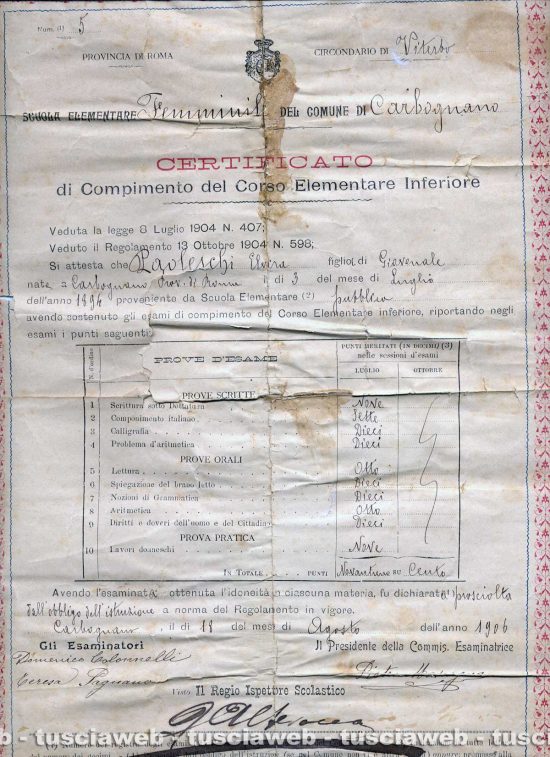 Num. (1) 5
PROVINCIA DI ROMA
CIRCONDARIO DI Viterbo
SCUOLA ELEMENTARE Femminile DEL COMUNE DI Carbognano
CERTIFICATO
di Compimento del Corso Elementare Inferiore
Veduta la legge 8 Luglio 1904 N. 407;
Veduto il Regolamento 13 Ottobre 1904 N. 598;
Si attesta che Paoleschi Elvira figlia di Giovenale
nata a Carbognano Prov. di Roma il dì 3 del mese di Luglio
dell'anno 1894 proveniente da Scuola Elementare (2) pubblica
avendo sostenuto gli esami di compimento del Corso Elementare inferiore, riportando negli
esami i punti seguenti:
N. d'ordine
PROVE D'ESAME
PUNTI MERITATI (IN DECIMI) (3)
nelle sessioni d'esami
LUGLIO OTTOBRE
PROVE SCRITTE
1 Scrittura sotto Dettatura Nove
2 Componimento italiano Sette
3 Calligrafia Dieci
4 Problema d'aritmetica Dieci
PROVE ORALI
5 Lettura Otto
6 Spiegazione del brano letto Dieci
7 Nozioni di Grammatica Dieci
8 Aritmetica Otto
9 Diritti e doveri dell'uomo e del Cittadino Dieci
PROVA PRATICA
10 Lavori donneschi Nove
IN TOTALE PUNTI Novantuno su Cento
Avendo l'esaminata ottenuta l'idoneità in ciascuna materia, fu dichiarata prosciolta
dall'obbligo dell'istruzione a norma del Regolamento in vigore.
Carbognano il dì 18 del mese di Agosto dell'anno 1906
Gli Esaminatori
Il Presidente della Commis. Esaminatrice
Domenico Colonnelli
Teresa
Visto Il Regio Ispettore Scolastico
web - tusciaweb - tusciaweb - tusciaweb - tusciaweb